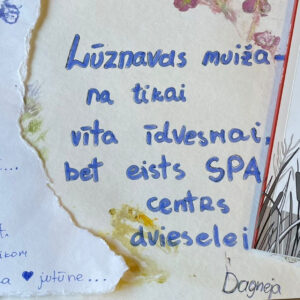 Lūznavas muiža -
na tikai
vīta īdvesmai,
bet eists SPA
centrs
dvieselei
Dagneja
...
♥ jutūne...